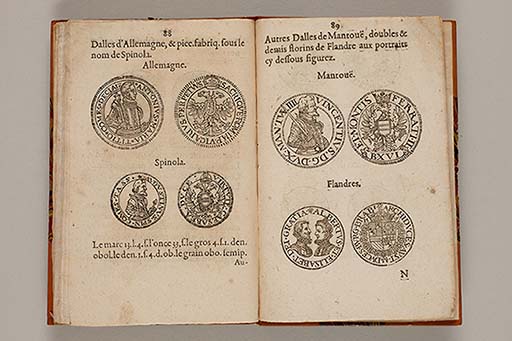 88
Dalles d'Allemagne, & piec. fabriq. sous le
nom de Spinola.
Allemagne.
Spinola.
Le marc 33. l. 4. s. l'once 33. s. le gros 4. s. 1. den.
obol. le den. 1. s. 4. d. ob. le grain obo. semip.
Au-
89
Autres Dalles de Mantouë, doubles &
demis florins de Flandre aux portraits
cy dessous figurez.
Mantouë.
VINCENTIVS. D. G. DVX. MANTVÆ IIII
ET MONTIS FERRAT
Flandres.
ALBERTVS ET ELISABET DEI GRATIA
ARCHIDVCES
N